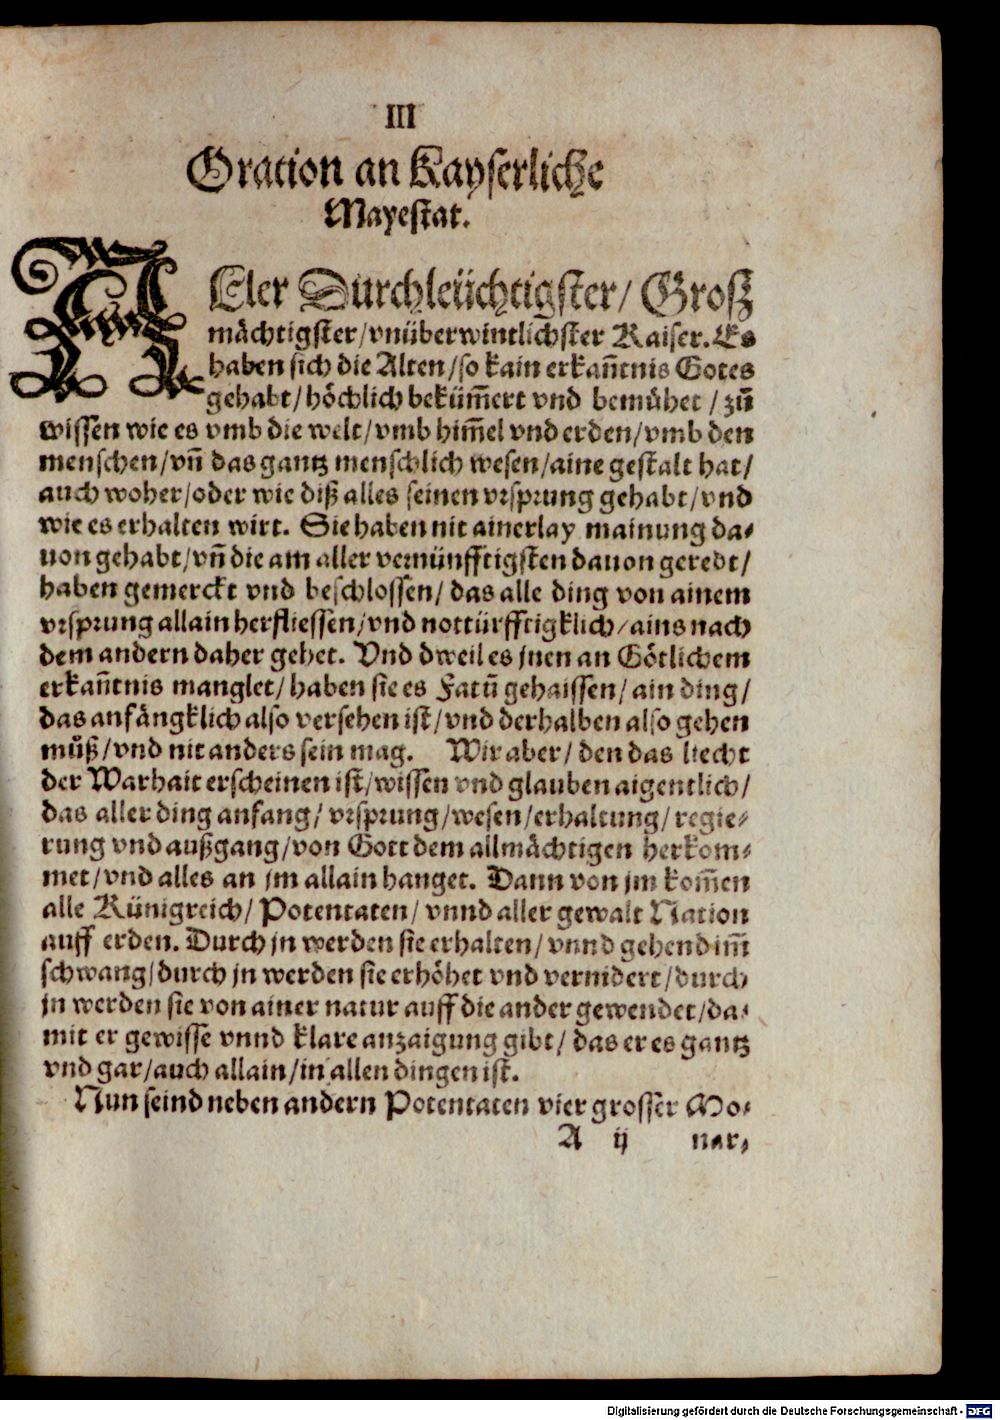 III
Oration an Kayserliche
Mayestat.
ALler Durchleüchtigster/ Groß
mächtigster/vnüberwintlichster Kaiser. Es
haben sich die Alten/so kain erkañtnis Gotes
gehabt/höchlich beküm̃ert vnd bemühet/zů
wissen wie es vmb die welt/vmb him̃el vnd erden/vmb den
menschen/vñ das gantz menschlich wesen/aine gestalt hat/
auch woher/oder wie diß alles seinen vrsprung gehabt/vnd
wie es erhalten wirt. Sie haben nit ainerlay mainung da⸗
uon gehabt/vñ die am aller vernünfftigsten dauon geredt/
haben gemerckt vnd beschlossen/das alle ding von ainem
vrsprung allain herfliessen/vnd nottürfftigklich/ains nach
dem andern daher gehet. Vnd dweil es jnen an Götlichem
erkañtnis manglet/haben sie es Fatũ gehaissen/ain ding/
das anfängklich also versehen ist/vnd derhalben also gehen
můß/vnd nit anders sein mag. Wir aber/den das liecht
der Warhait erscheinen ist/wissen vnd glauben aigentlich/
das aller ding anfang/vrsprung/wesen/erhaltung/regie⸗
rung vnd außgang/von Gott dem allmächtigen herkom⸗
met/vnd alles an jm allain hanget. Dann von jm kom̃en
alle Künigreich/Potentaten/vnnd aller gewalt Nation
auff erden. Durch jn werden sie erhalten/vnnd gehend im̃
schwang/durch jn werden sie erhöhet vnd vernidert/durch
jn werden sie von ainer natur auff die ander gewendet/da⸗
mit er gewisse vnnd klare anzaigung gibt/das er es gantz
vnd gar/auch allain/in allen dingen ist.
Nun seind neben andern Potentaten vier grosser Mo⸗
A ij nar⸗
Digitalisierung gefördert durch die Deutsche Forschungsgemeinschaft - DFG